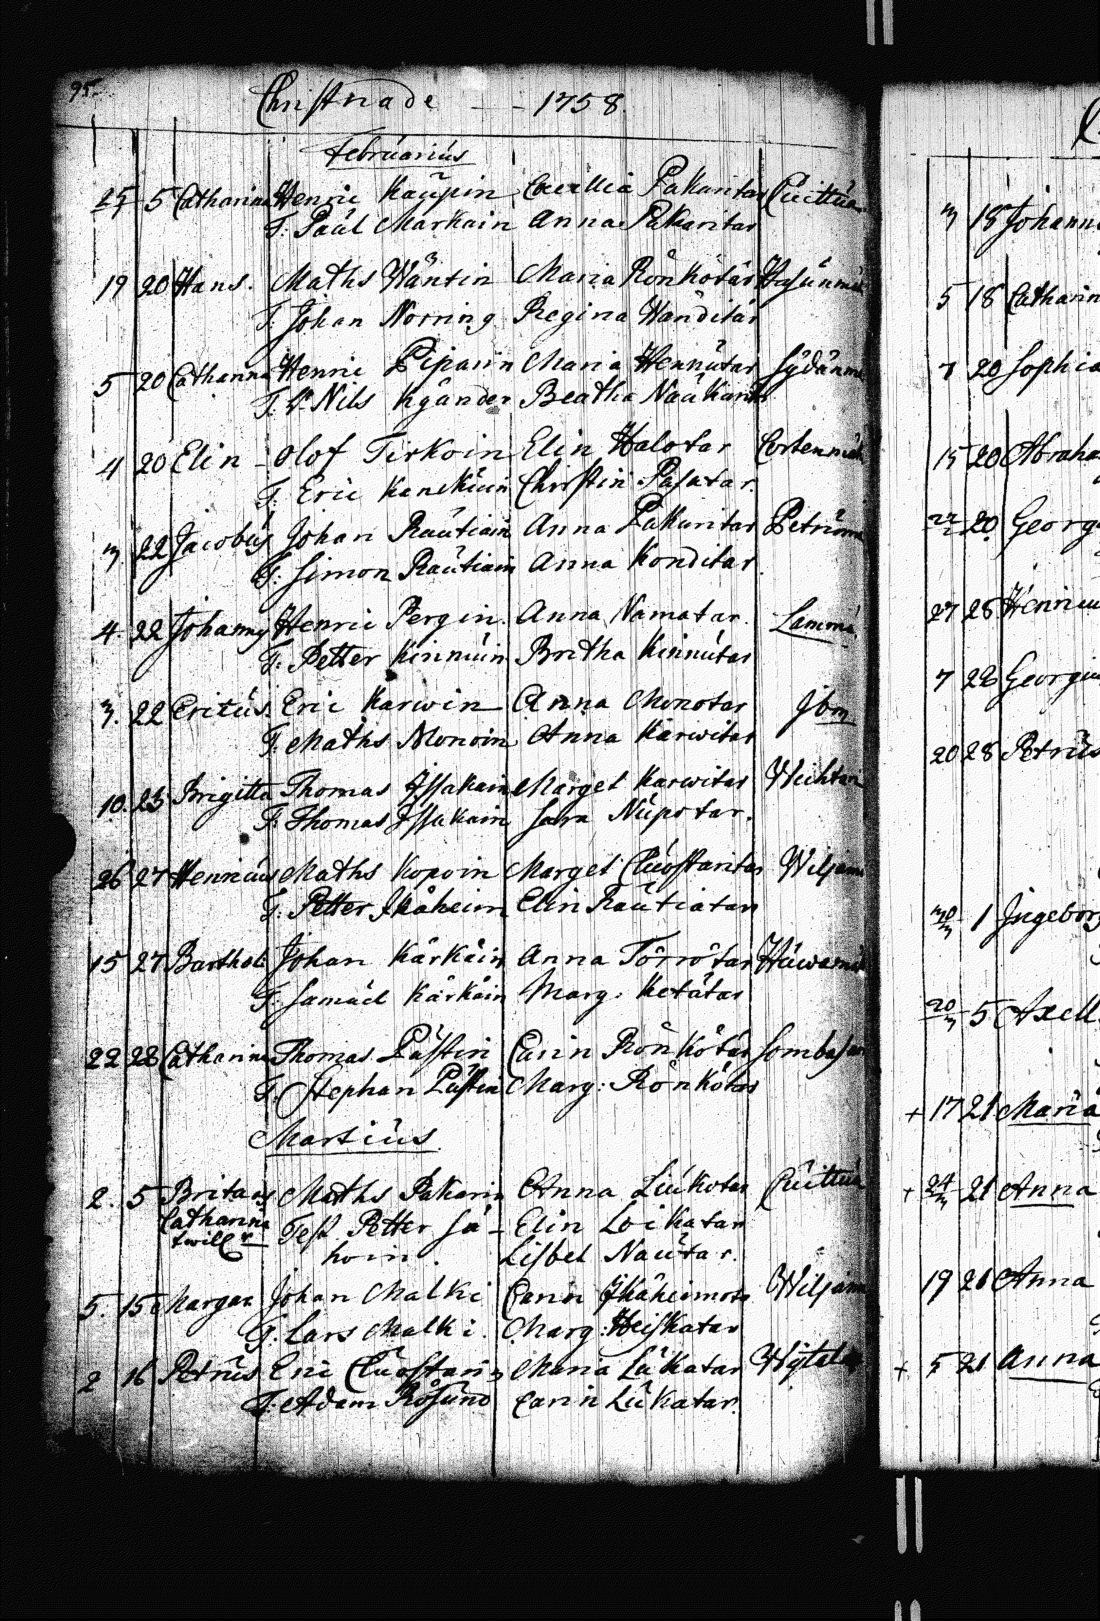 95.
Christnade - - 1758.
Februarius
25/1 5 Catharina Henric Kaupin Caecilia Pakaritar Cuittua
T: Paul Markain Anna Pakaritar
19 20 Hans. Maths Wäntin Maria Rönkötär
T. Johan Norring Regina Wänditär
5 20 Catharina Henric Piparin Maria Hennutar Sydänma
T. Nils Kyander Beatha
4 20 Elin - Olof Tirkoin Elin Halotar
T. Eric Christin Pasatar.
3. 22 Jacobus Johan Rautiain Anna Pakaritar Petruma
T: Simon Rautiain Anna Konditar
4. 22 Johannes Henric Pergin. Anna Namatar. Lamma.
T: Petter Kinnuin Britha Kinnutar
3. 22 Ericus. Eric Karwin Anna Monotar Jbm
T. Maths Monoin Anna Karwitar
10. 23 Brigitta Thomas Assakain Marget Karwitar
T. Thomas Assakain Sara Nupotar.
26 27 Henricus Maths Kopoin Marget Cluostaritar Wiljam
T. Petter Ikäheim Elin Rautiatar
15 27 Barthol: Johan Kärkäin Anna Törrötar
T. Samuel Kärkäin Marg: Ketätar
22 28 Catharina Thomas Pästin Carin Rönkötar Sombasa
T. Stephan Pästin Marg: Rönkötar
Martius
2. 5 Brita Maths Pakarin Anna Liukotar Cuittua
Catharina Test Petter Sa- Elin Loikatar
twill: hoin. Lisbet Nautar.
5. 15 Margar Johan Malki Carin Ikäheimotar Wiljam
T. Lars Malki. Marg: Heiskatar
2 16 Petrus Eric Cluostarin Maria Lukatar
T. Adam Rosund Carin Lukatar.
3 18 Johann
5 18 Catharin
7 20 Sophia
15 20 Abraha
20 Georg
27 28 Henricu
7 28 Georgiu
20 28 Petrus
1 Ingeborg
5 Axell
+ 17 21 Maria
+ 24/3 21 Anna
19 21 Anna
+ 5 21 Anna